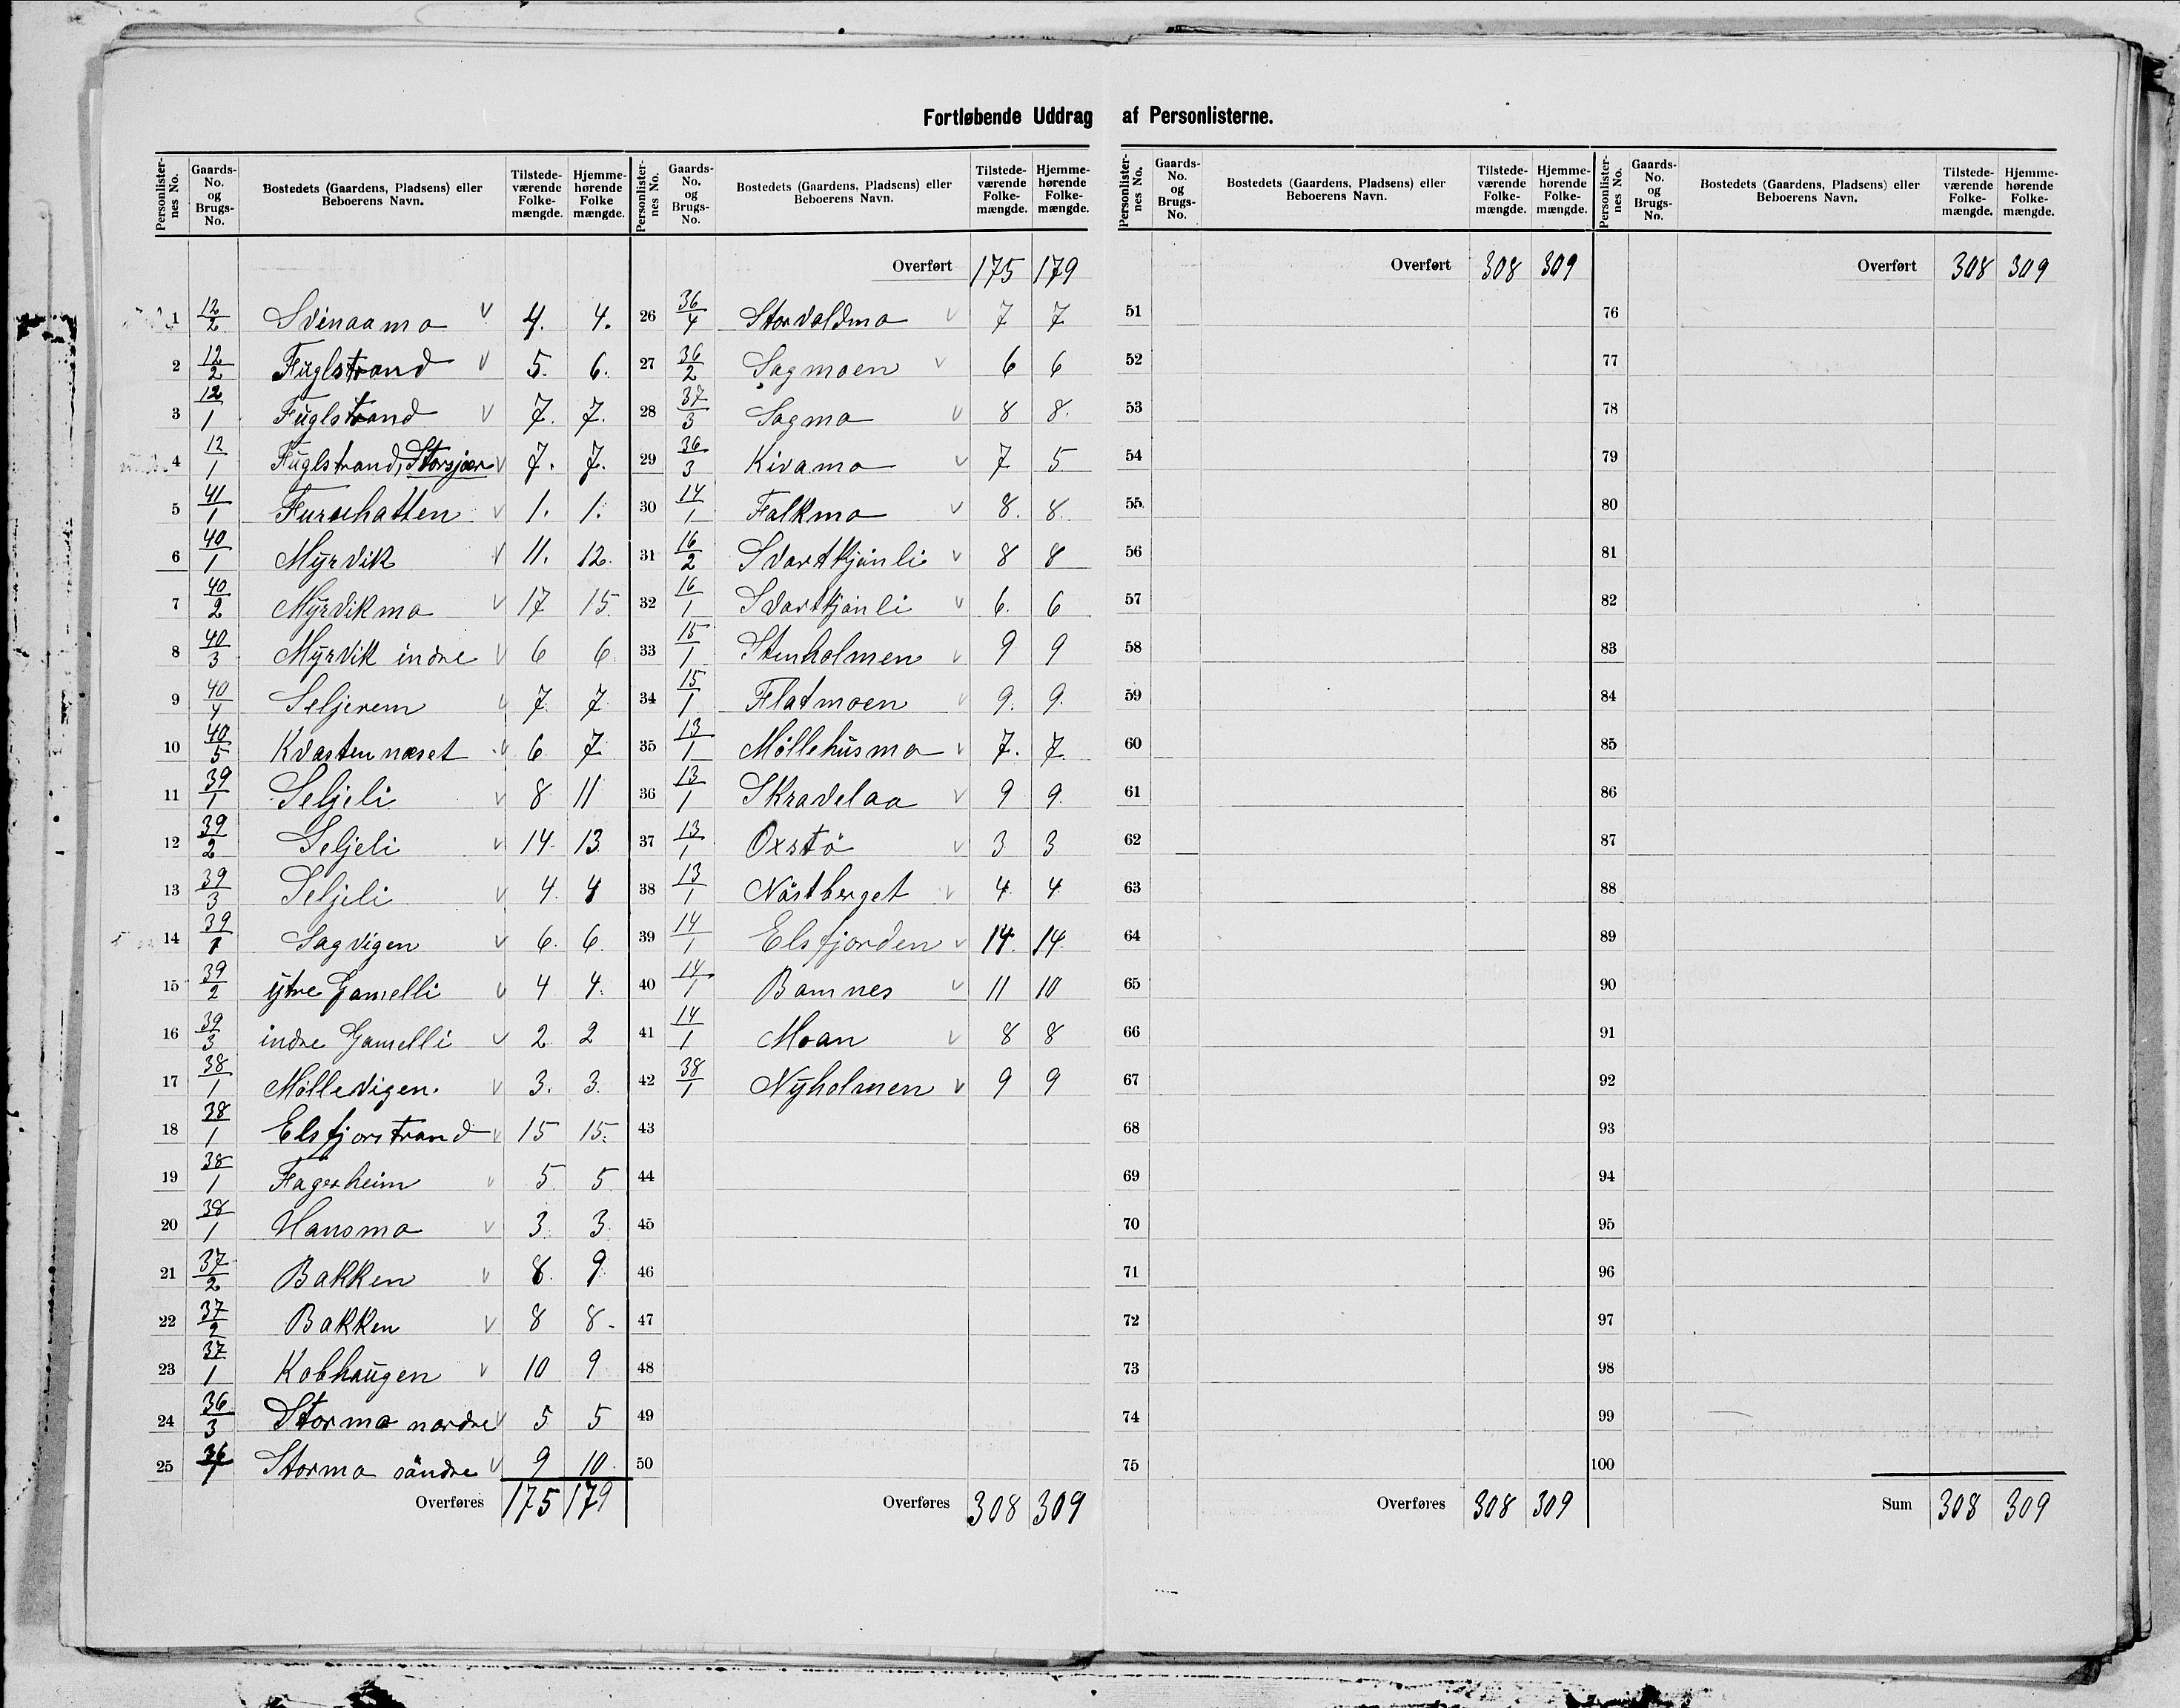 Fortløbende Uddrag af Personlisterne.
Personlister-nes No. | Gaards-No. og Brugs-No. | Bostedets (Gaardens, Pladsens) eller Beboerens Navn. | Tilstede-værende Folke-mængde. | Hjemme-hørende Folke mængde.
1 12/2 Svinaamo v 4. 4.
2 12/2 Fuglstrand v 5. 6.
3 12/1 Fuglstrand v 7. 7.
4 12/1 Fuglstrand, Storsjoer v 7. 7.
5 41/1 Furuhatten v 1. 1.
6 40/1 Myrvik v 11. 12.
7 40/2 Myrvikmo v 17 15.
8 40/3 Myrvik indre v 6 6.
9 40/4 Seljerem v 7. 7.
10 40/5 Kvastennæset v 6. 7
11 39/1 Seljeli v 8 11
12 39/2 Seljeli v 14. 13
13 39/3 Seljeli v 4. 4
14 39/1 Sagvigen v 6. 6.
15 39/2 ytre Gamelli v 4 4.
16 39/3 indre Gamelli v 2 2
17 38/1 Møllevigen. v 3. 3.
18 38/1 Elsfjorstrand v 15 15.
19 38/1 Fagerheim v 5 5
20 38/1 Hansmo v 3. 3.
21 37/2 Bakken v 8. 9
22 37/2 Bakken v 8 8-
23 37/1 Kobhaugen v 10 9
24 36/3 Stormo nordre v 5 5
25 36/1 Stormo søndre v 9 10.
Overføres 175 179
Personlister-nes No. | Gaards-No. og Brugs-No. | Bostedets (Gaardens, Pladsens) eller Beboerens Navn. | Tilstede-værende Folke-mængde. | Hjemme-hørende Folke-mængde.
Overført 175 179
26 36/4 Storvoldmo v 7 7
27 36/2 Sagmoen v 6 6
28 37/3 Sagmo v 8 8.
29 36/3 Kivamo v 7 5
30 14/1 Falkmo v 8. 8.
31 16/2 Svartkjönli v 8 8
32 16/1 Svartkjönli v 6. 6
33 15/1 Stenholmen v 9 9
34 15/1 Flatmoen v 9. 9.
35 13/1 Møllehusmo v 7. 7.
36 13/1 Skravelaa v 9 9.
37 13/1 Oxstö v 3 3
38 13/1 Nöstberget v 4. 4
39 14/1 Elsfjorden v 14. 14.
40 14/1 Bamnes v 11 10
41 14/1 Moan v 8 8
42 38/1 Nyholmen v 9 9
43
44
45
46
47
48
49
50
Overføres 308 309
Personlister-nes No. | Gaards-No. og Brugs-No. | Bostedets (Gaardens, Pladsens) eller Beboerens Navn. | Tilstede-værende Folke-mængde. | Hjemme-hørende Folke-mængde.
Overført 308 309
51
52
53
54
55
56
57
58
59
60
61
62
63
64
65
66
67
68
69
70
71
72
73
74
75
Overføres 308 309
Personlister-nes No. | Gaards-No. og Brugs-No. | Bostedets (Gaardens, Pladsens) eller Beboerens Navn. | Tilstede-værende Folke-mængde. | Hjemme-hørende Folke-mængde.
Overført 308 309
76
77
78
79
80
81
82
83
84
85
86
87
88
89
90
91
92
93
94
95
96
97
98
99
100
Sum 308 309